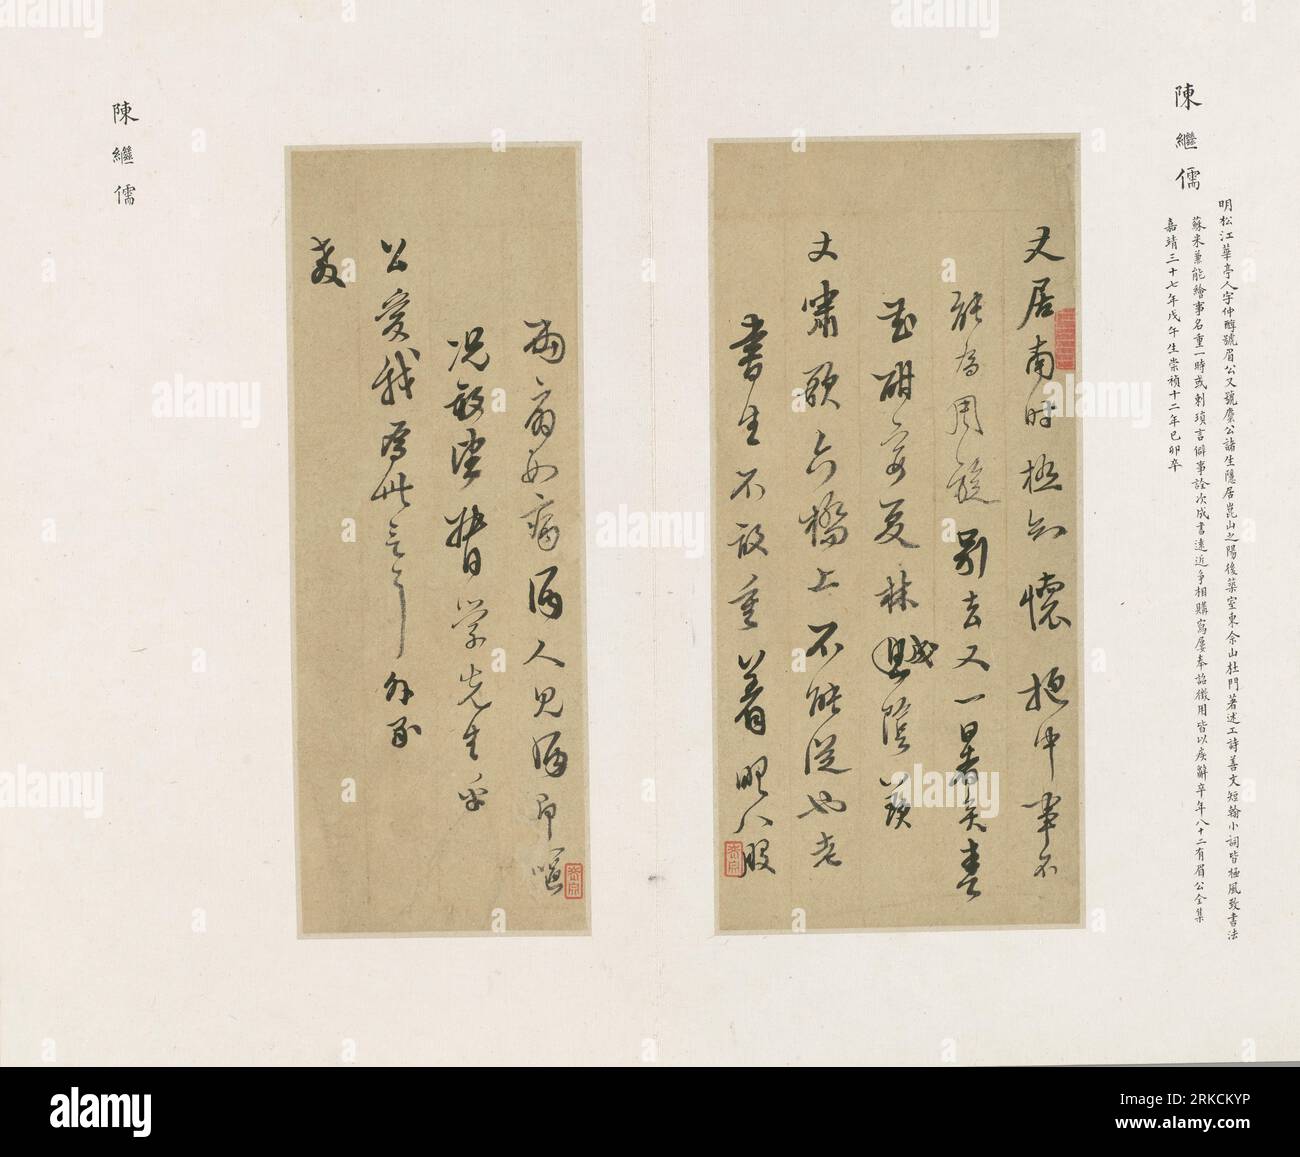 陳繼儒
明松江華亭人字仲醇號眉公又號麋公諸生隱居崑山之陽後築室東佘山杜門著述工詩善文短翰小詞皆極風致書法
蘇米兼能繪事名重一時或刺瑣言僻事詮次成書遠近爭相購寫屢奉詔徵用皆以疾辭卒年八十二有眉公全集
嘉靖三十七年戊午生崇禎十二年己卯卒
丈居南时極知懷抱中事不
能為周旋別去又一暑矣
夏林
丈嘯歌六橋上不能從也老
書生不敢重著眼八股
兩病如病酒人見酒即嘔
況敢望措學先生乎
公愛我為此言耳
教
陳繼儒
alamy
Image ID: 2RKCKYP
www.alamy.com